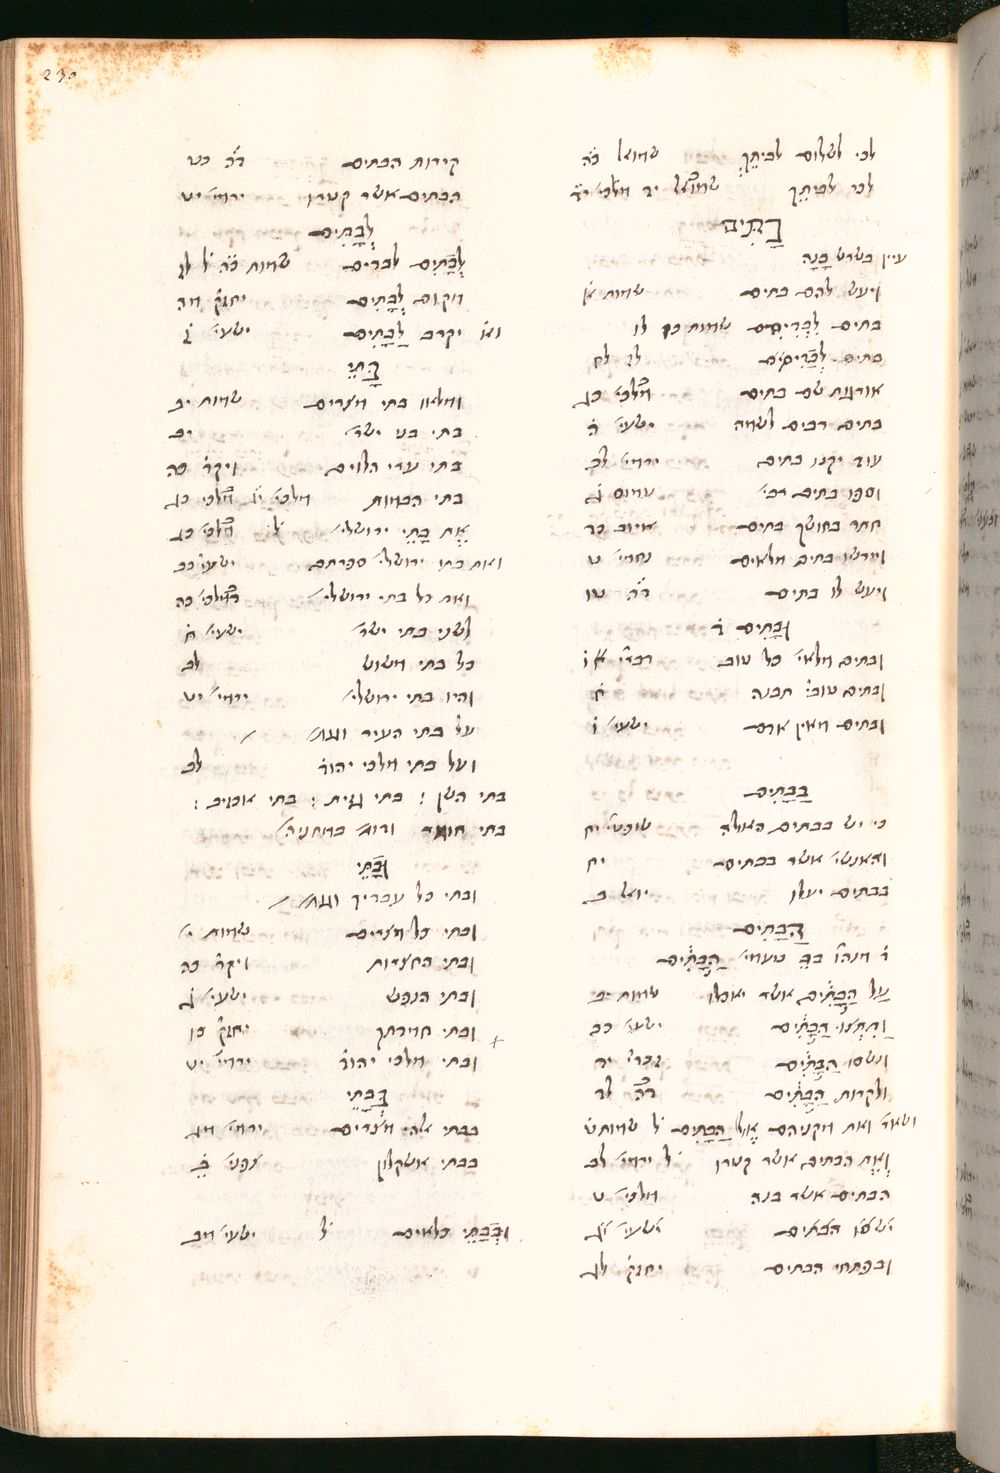 230
לכי לשלום לביתך שמואל כ̇ה
לכי לביתך שמואל יד מלכי יד
בָּתִּים
עיין בשרש בָּנָה
ויעש להם בתים שמות א
בתים לבריחים שמות כו לו
בתים לבריחים לו לח
אורגות שם בתים מלכי כג
בתים רבים לשמה ישעי ה
עוד יקנו בתים ירמי לב
וספו בתים רבי עמוס ג
חתר בחושך בתים איוב כד
ויירשו בתים מלאים נחמי ט
ויעש לו בתים ד̇ה טו
וּבָתִּים ד
ובתים מלאי כל טוב דברי או
ובתים טובי תבנה ח
ובתים מאין אדם ישעי ו
בַּבָּתִּים
כי יש בבתים האלה שופטי יח
והאנשי אשר בבתים יח
בבתים יעלו יואל ב
הַבָּתִּים
ד מנהו בה בטעמי הַבָּתִּים
על הַבָּתִּים אשר יאכלו שמות יב
וַתִּתְצוּ הַבָּתִּים ישעי כב
ונשסו הַבָּתִּים זכרי יד
ולקרות הַבָּתִּים ד̇ה לד
ושאר ואת מקניהם אֶל הַבָּתִּים ל שמות ט
וְאֶת הבתים אשר קטרו ל ירמי לב
הבתים אשר בנה מלכי ט
ישסו הבתים ישעי יג
ובפתחי הבתים יחזק לג
קירות הבתים ד̇ה כט
הבתים אשר קטרו ירמי יט
לְבָתִּים
לְבָתִּים לבדים שמות כה ל לז
מקום לְבָתִּים יחזק מה
ואו יקרב לַבָּתִּים ישעי ג
בָּתֵּי
ומלאו בתי מצרים שמות יב
בתי בני ישר יב
בתי ערי הלוים ויקר כה
בתי הבמות מלכי יג מלכי כג
אֶת בָּתֵּי ירושלי ל מלכי כג
ואת בתי ירושלי ספרתם ישעי כב
ואת כל בתי ירושלי מלכי כה
לשני בתי ישר ישעי ח
כל בתי משוש לב
והיו בתי ירושלי ירמי יט
על בתי העיר וגו
ועל בתי מלכי יהוד לב
בתי השן : בתי גזית : בתי אכזיב :
בתי חומר ורוא בדוחניה
וּבָתֵּי
ובתי כל עבריך וגו
ובתי כל מצרים שמות י
ובתי החצרות ויקר כה
ובתי הנפש ישעי ג
ובתי חמדתך יחזק כו
ובתי מלכי יהוד ירמי יט
בְּבָתֵּי
בבתי אלהי מצרים ירמי מג
בבתי אשקלון צפני ב
ובְּבָתֵּי כלאים ל ישעי מב